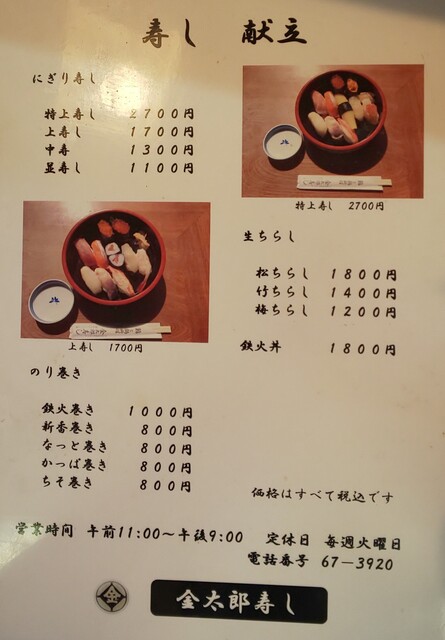 寿し 献立
にぎり寿し
特上寿し 2700円
上寿し 1700円
中寿し 1300円
並寿し 1100円
特上寿し 2700円
上寿し 1700円
生ちらし
松ちらし 1800円
竹ちらし 1400円
梅ちらし 1200円
鉄火丼 1800円
のり巻き
鉄火巻き 1000円
新香巻き 800円
なっと巻き 800円
かっぱ巻き 800円
ちそ巻き 800円
価格はすべて税込です
営業時間 午前11:00〜午後9:00 定休日 毎週火曜日
電話番号 67-3920
金 金太郎寿し